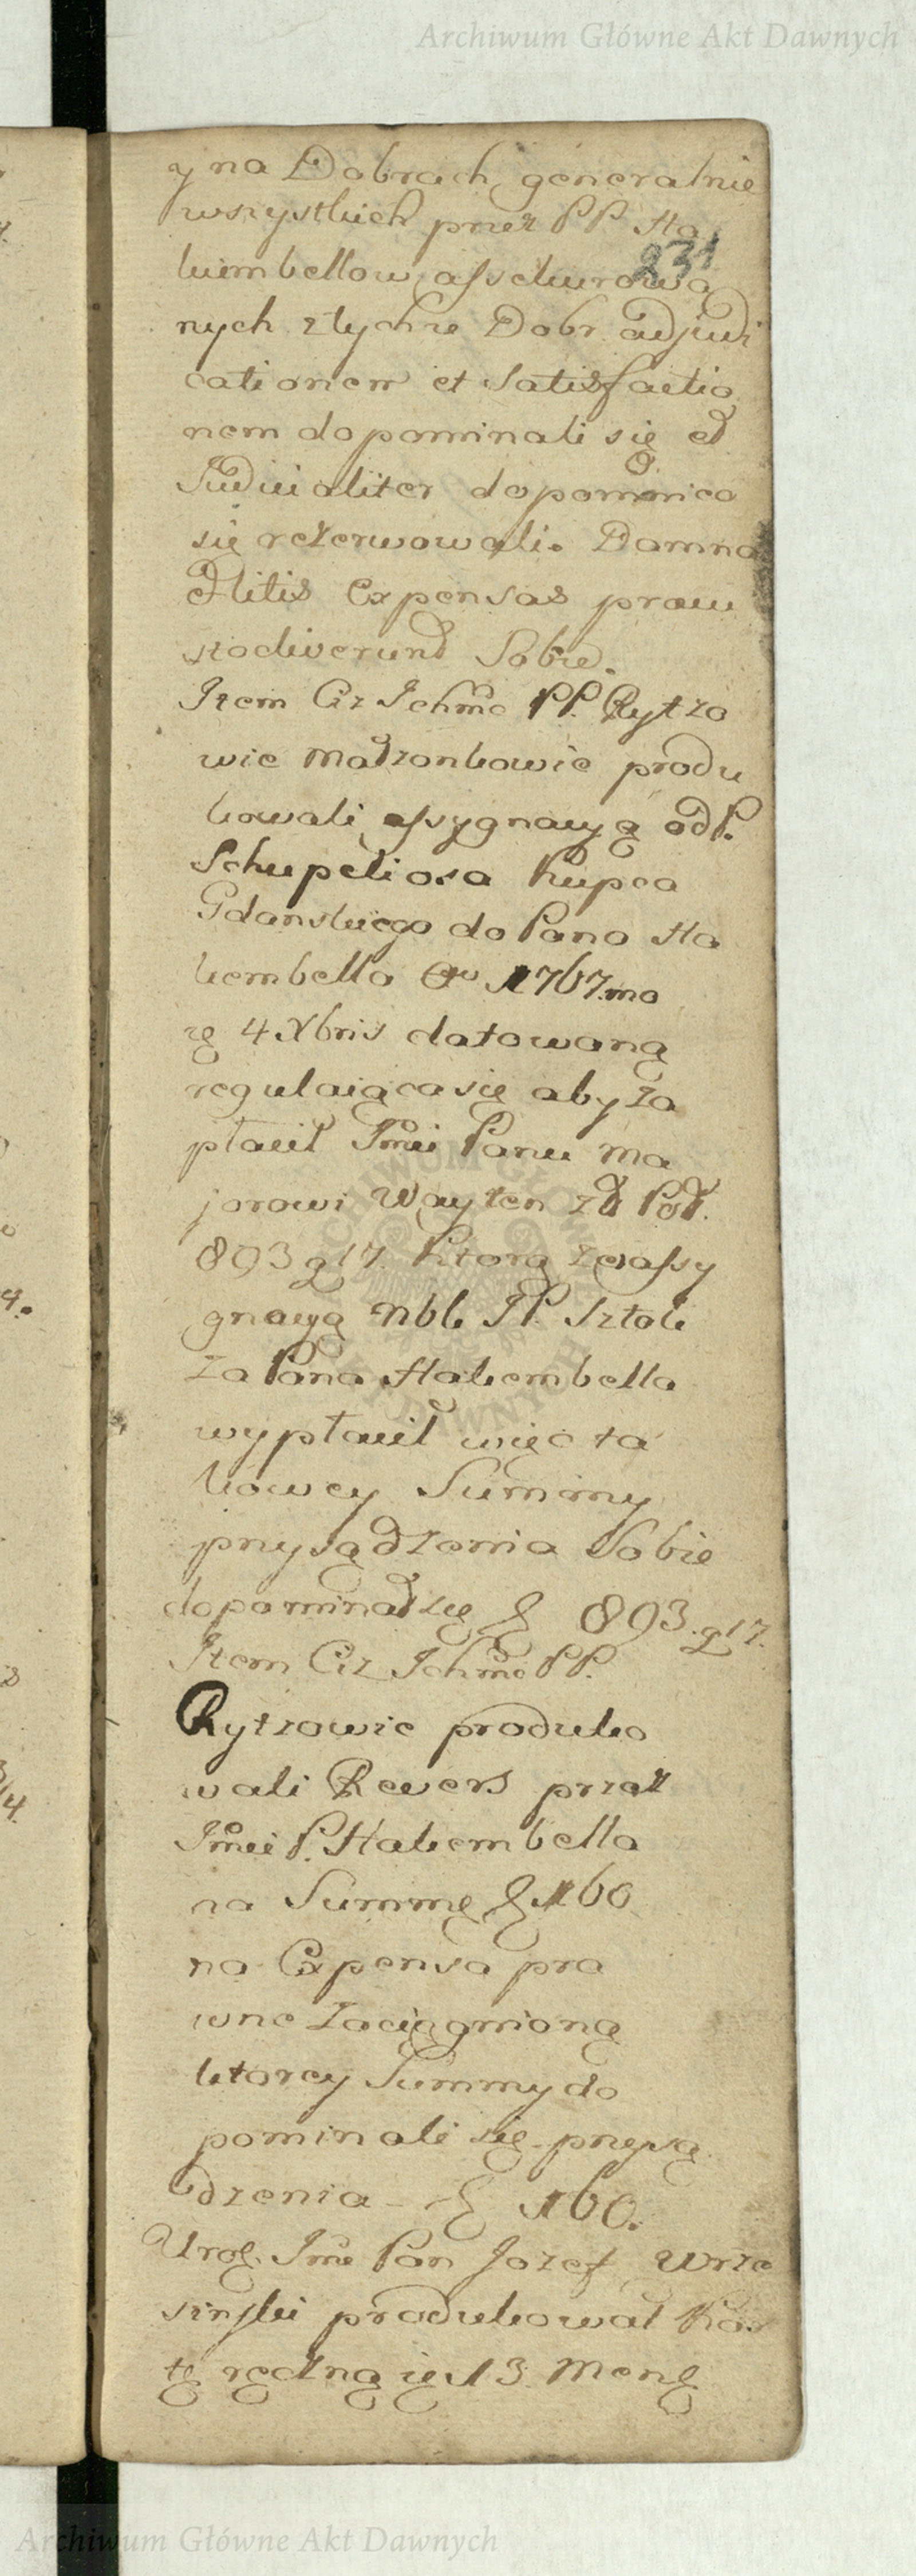 Archiwum Główne Akt Dawnych
y na Dobrach generalnie
wszystkich przez PP. Ha
231
kiembellow assekurowa
nych z tychze Dobr adjudi
cationem et Satisfactio
nem dopominali się et
Judicialiter dopominac
się rezerwowali. Damna
Litis Expensas praw
sie rezerwowali
Item Ciż Ichmc PP. Rytzo
wie Małzonkowie produ
kowali assygnacyą od P.
Schupeliosa Kupca
Gdanskiego do Pana Ha
kembella 1767.mo
4 Xbris datowaną
regulaiącą się aby za
płacił Jmci Panu Ma
jorowi Wayten
893 g 17. Ktorą
gnacyą Nbl. JP. Sztok
za Pana Hakembella
wypłacił więc ta
kowey Summy
przysądzenia Sobie
dopominał się 893. g 17.
Item Ciż Ichmc PP.
Rytzowie produko
wali Rewers przez
Jmci P. Hakembella
na Summę 160
na Expensa pra
wne zaciągnioną
ktorey Summy do
pominali się przysą
dzenia 160.
Urodz. Jmc Pan Jozef Wrze
sinski produkował Kar
tę ręczną 13 Mens
Archiwum Główne Akt Dawnych